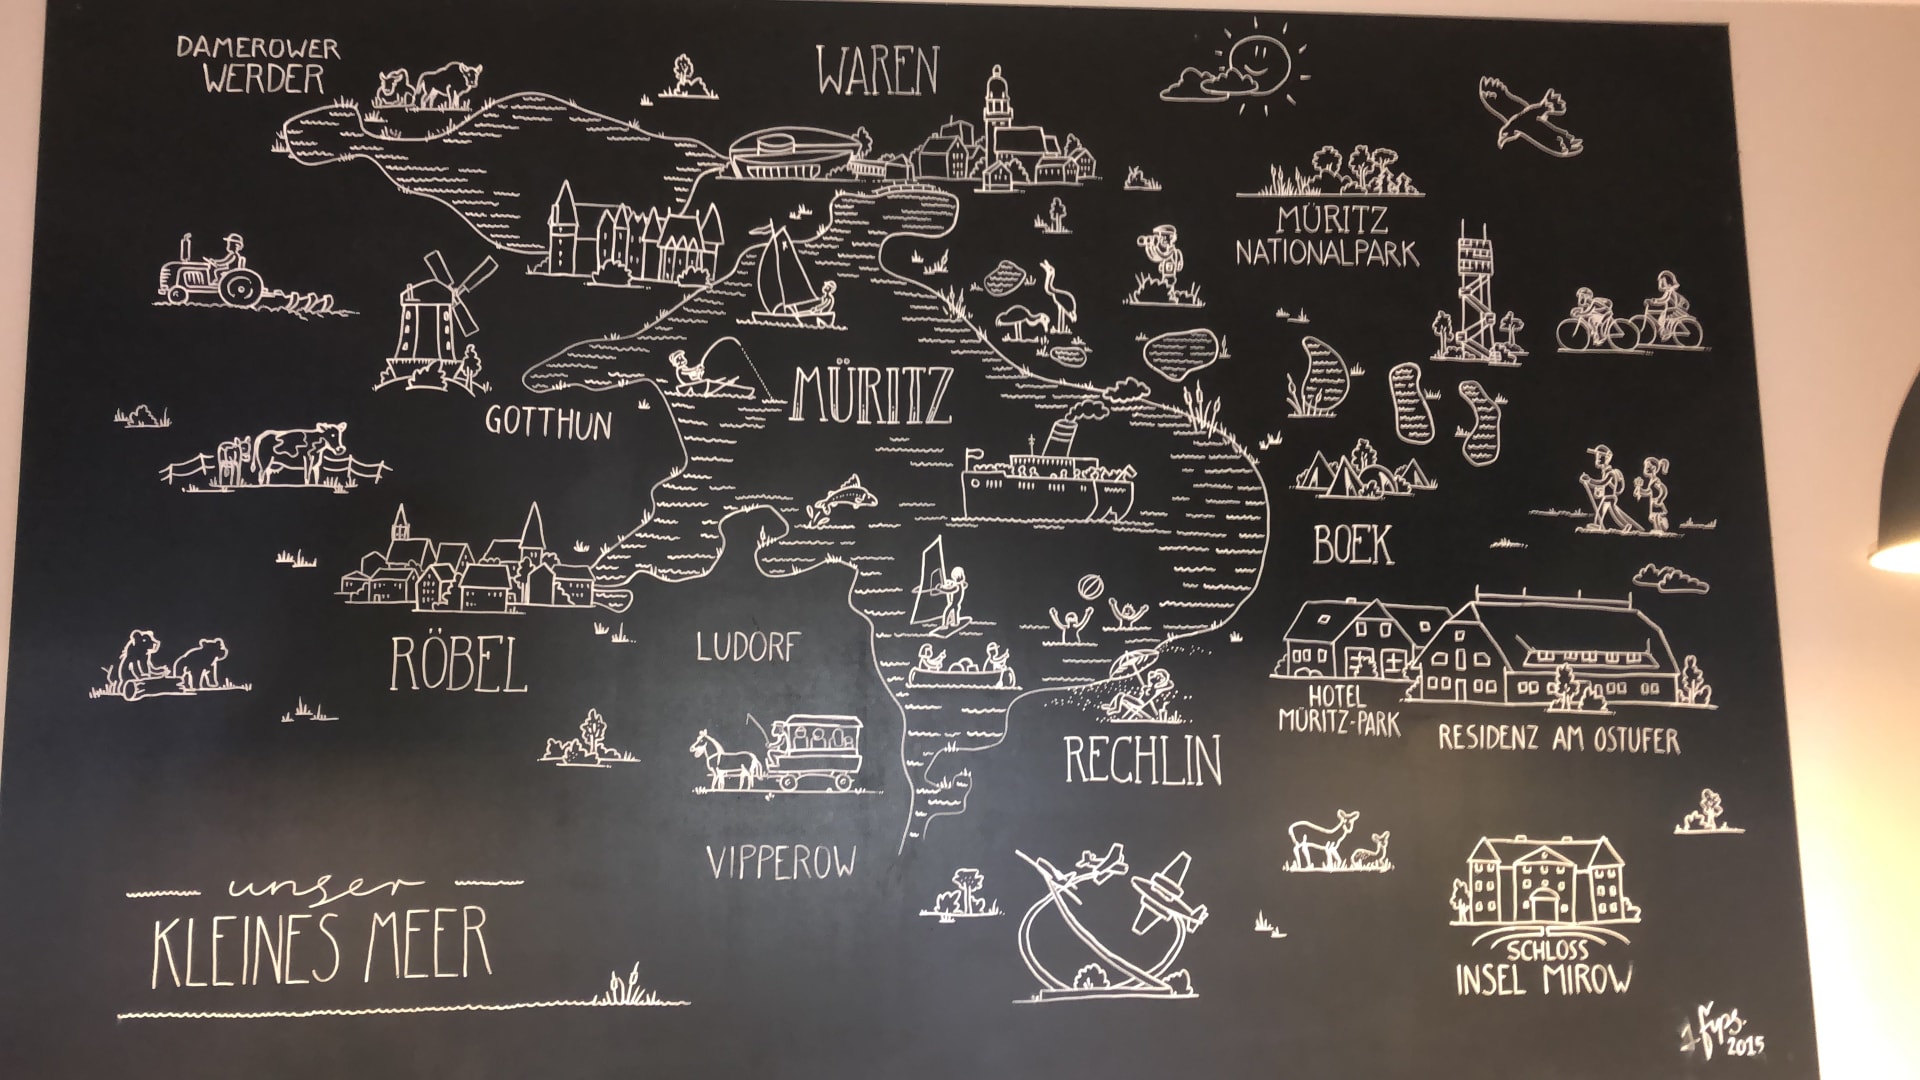 DAMEROWER
WERDER
WAREN
MÜRITZ
NATIONALPARK
MÜRITZ
GOTTHUN
BOEK
RÖBEL
LUDORF
HOTEL
MÜRITZ-PARK
RESIDENZ AM OSTUFER
RECHLIN
VIPPEROW
unser
KLEINES MEER
SCHLOSS
INSEL MIROW
fyps.
2015